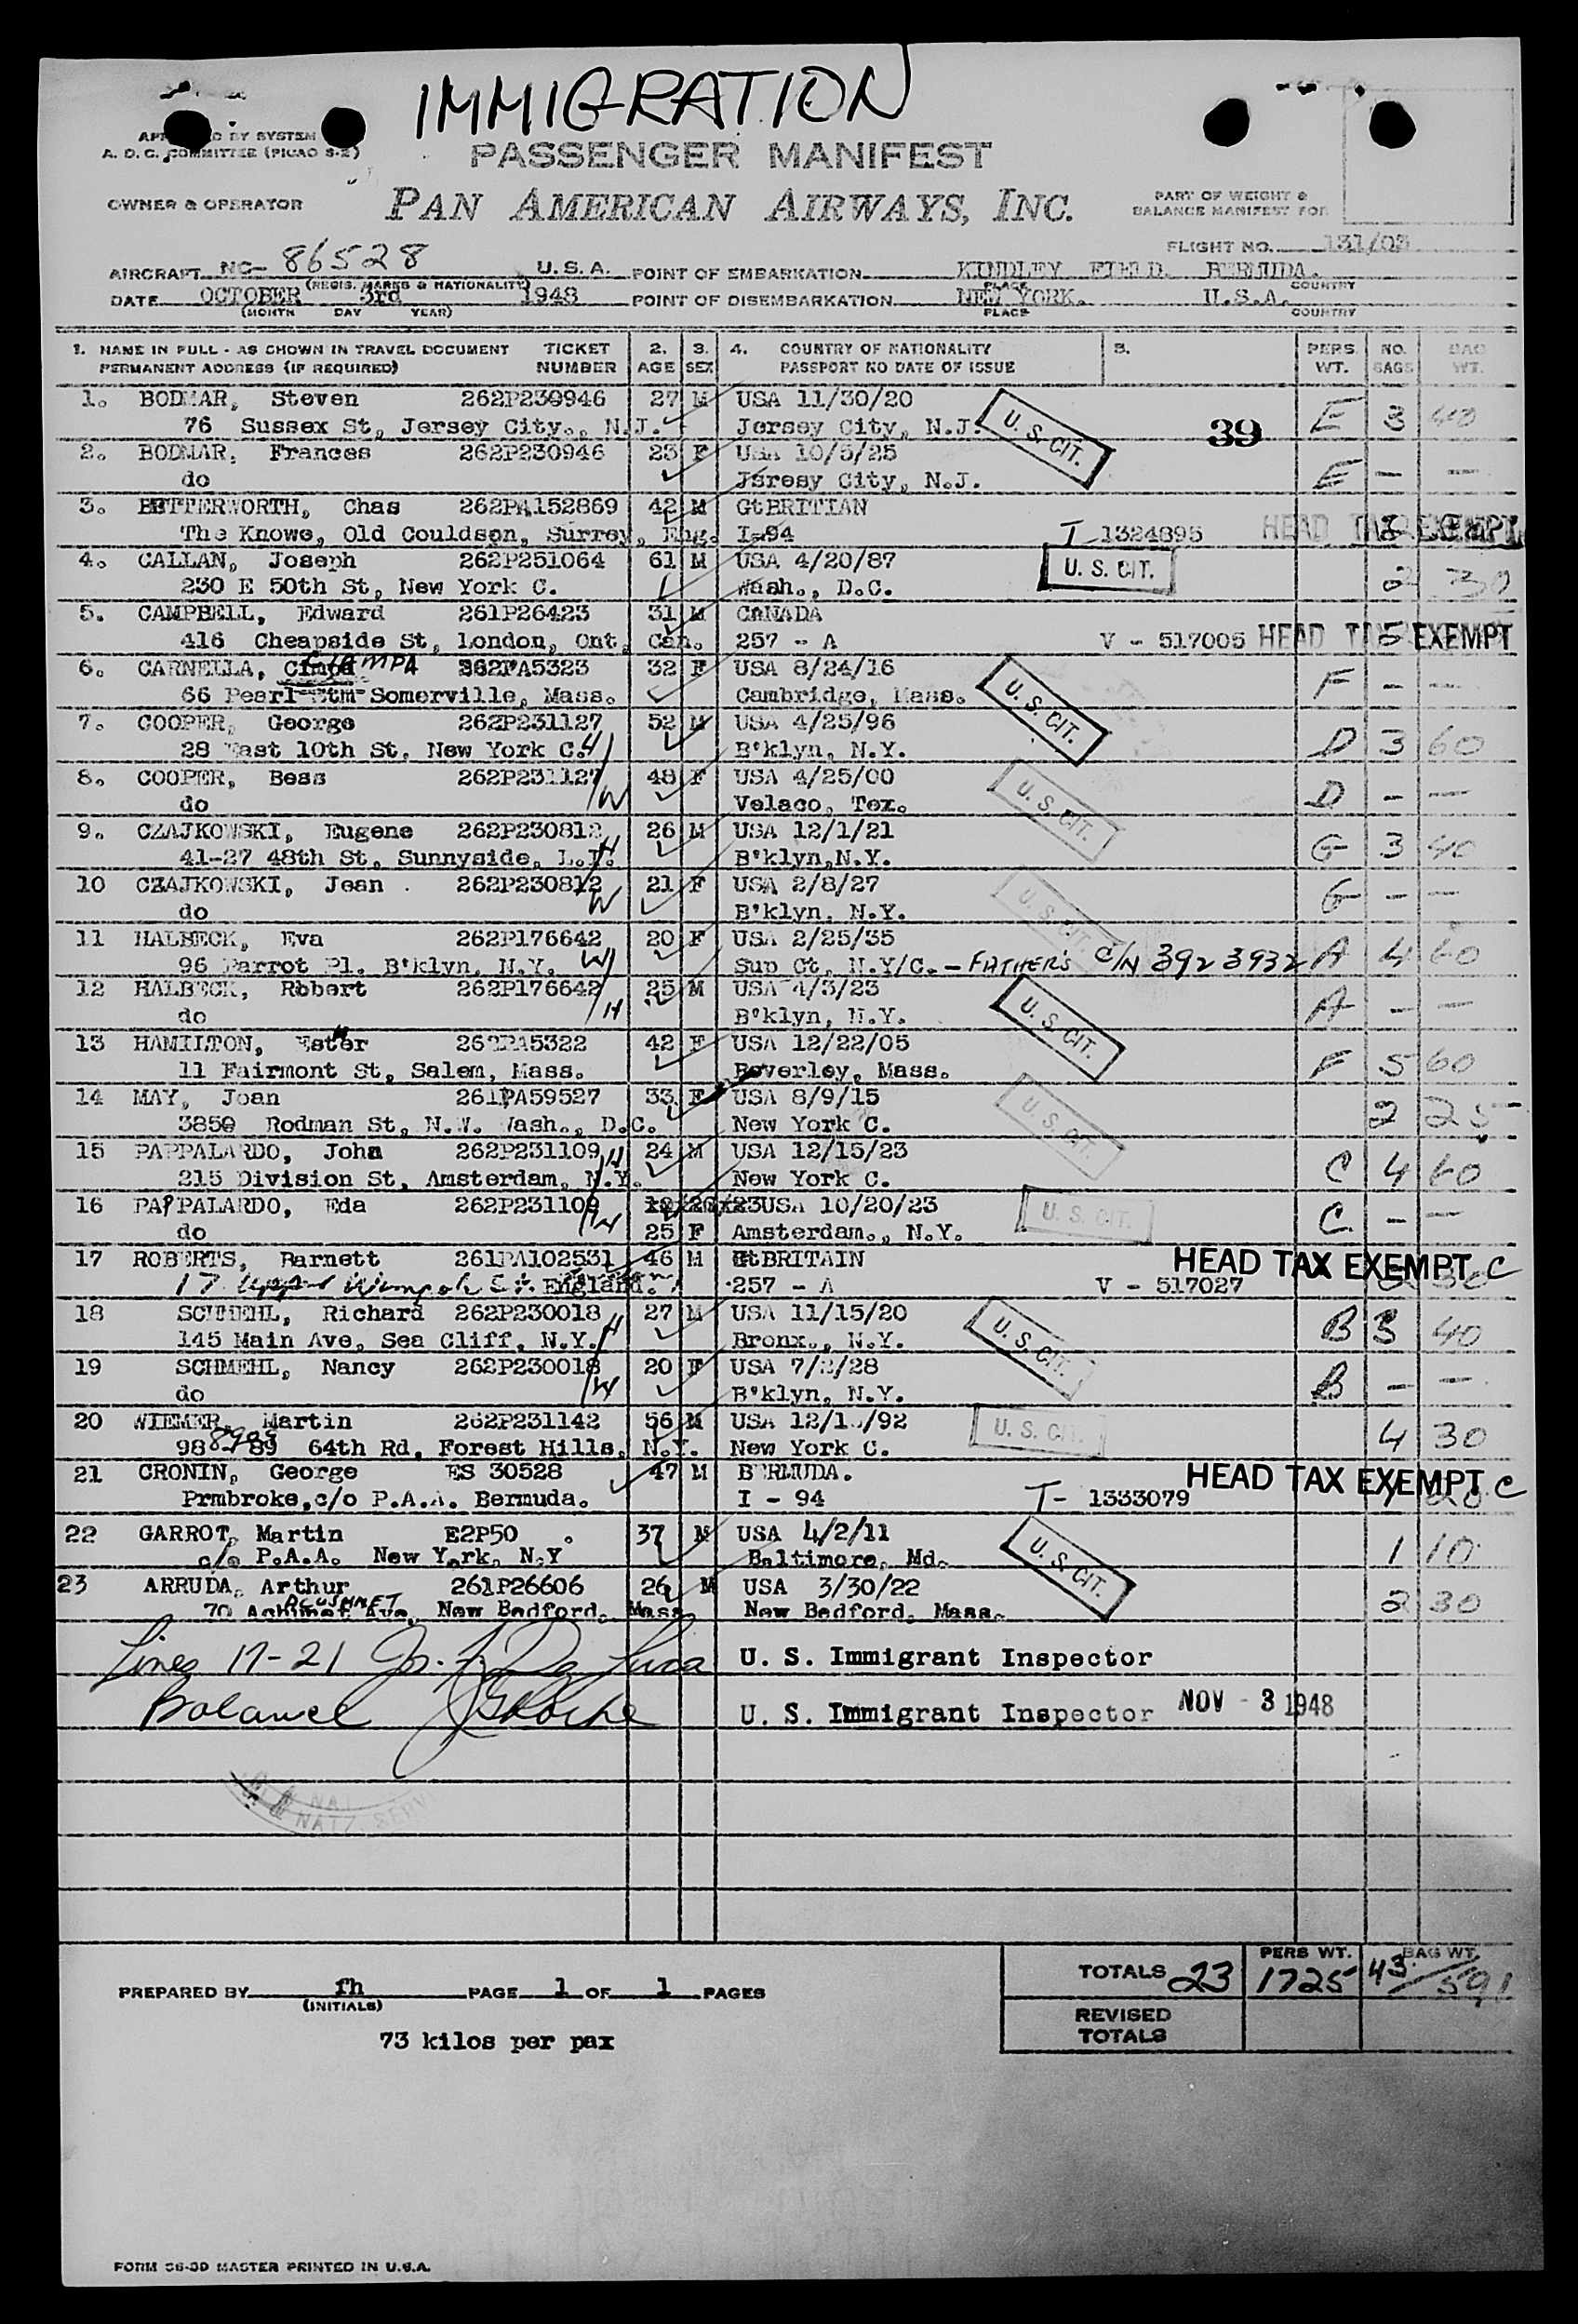 IMMIGRATION
BY SYSTEM
A. D. C. COMMITTEE (PICAO S-2)
PASSENGER MANIFEST
OWNER & OPERATOR
PAN AMERICAN AIRWAYS, INC.
PART OF WEIGHT &
BALANCE MANIFEST FOR
FLIGHT NO. 131/03
AIRCRAFT NC- 86528 U.S.A. POINT OF EMBARKATION KINDLEY FIELD. BERMUDA.
(REGIS. MARKS & NATIONALITY) PLACE COUNTRY
DATE OCTOBER 3rd 1948 POINT OF DISEMBARKATION NEW YORK. U.S.A.
(MONTH DAY YEAR) PLACE COUNTRY
1. NAME IN FULL - AS SHOWN IN TRAVEL DOCUMENT TICKET 2. 3. 4. COUNTRY OF NATIONALITY 5. PERS. NO. BAG
PERMANENT ADDRESS (IF REQUIRED) NUMBER AGE SEX PASSPORT NO DATE OF ISSUE WT. BAGS WT.
1. BODMAR, Steven 262P230946 27 M USA 11/30/20 E 3 40
76 Sussex St, Jersey City., N.J. Jersey City, N.J. U. S. CIT. 39
2. BODMAR, Frances 262P230946 23 F USA 10/5/25 E - -
do Jersey City, N.J.
3. BETTERWORTH, Chas 262PA152869 42 M GtBRITIAN
The Knowe, Old Couldson, Surrey, Eng. I-94 T-1324895 HEAD TAX EXEMPT
4. CALLAN, Joseph 262P251064 61 M USA 4/20/87 U. S. CIT.
230 E 50th St, New York C. Wash., D.C. 2 30
5. CAMPBELL, Edward 261P26423 31 M CANADA
416 Cheapside St, London, Ont, Can. 257 - A V - 517005 HEAD TAX EXEMPT
6. CARNELLA, CIAMPA 262PA5323 32 F USA 8/24/16 F - -
66 Pearl Stm Somerville, Mass. Cambridge, Mass. U. S. CIT.
7. COOPER, George 262P231127 52 M USA 4/25/96 D 3 60
28 East 10th St, New York C. H B'klyn, N.Y.
8. COOPER, Bess 262P231127 48 F USA 4/25/00 D - -
do W Velaco, Tex. U. S. CIT.
9. CZAJKOWSKI, Eugene 262P230812 26 M USA 12/1/21 G 3 40
41-27 48th St, Sunnyside, L.I. H B'klyn,N.Y.
10 CZAJKOWSKI, Jean 262P230812 21 F USA 2/8/27 G - -
do W B'klyn, N.Y. U. S. CIT.
11 HALBECK, Eva 262P176642 20 F USA 2/25/35 A 4 60
96 Parrot Pl. B'klyn, N.Y. W Sup Ct, N.Y/C. - FATHER'S C/N 3923932
12 HALBECK, Robert 262P176642 25 M USA 4/3/23 A - -
do H B'klyn, N.Y. U. S. CIT.
13 HAMILTON, Ester H 262PA5322 42 F USA 12/22/05 F 5 60
11 Fairmont St, Salem, Mass. Beverley, Mass.
14 MAY, Joan 261PA59527 33 F USA 8/9/15 2 25
3850 Rodman St, N.W. Wash., D.C. New York C. U. S. CIT.
15 PAPPALARDO, John 262P231109 24 M USA 12/15/23 C 4 60
215 Division St, Amsterdam, N.Y. H New York C.
16 PAPPALARDO, Eda 262P231109 USA 10/20/23 C - -
do W 25 F Amsterdam., N.Y. U. S. CIT.
17 ROBERTS, Barnett 261PA102531 46 M GtBRITAIN HEAD TAX EXEMPT C
17 Upper Wimpole St. England. 257 - A V - 517027
18 SCHMEHL, Richard 262P230018 27 M USA 11/15/20 B 3 40
145 Main Ave, Sea Cliff, N.Y. H Bronx., N.Y. U. S. CIT.
19 SCHMEHL, Nancy 262P230018 20 F USA 7/2/28 B - -
do W B'klyn, N.Y.
20 WIEMER, Martin 262P231142 56 M USA 12/1 /92 U. S. CIT. 4 30
98 89 64th Rd, Forest Hills, N.Y. New York C.
21 CRONIN, George ES 30528 47 M BERMUDA. HEAD TAX EXEMPT C
Prmbroke,c/o P.A.A. Bermuda. I - 94 T- 1333079
22 GARROT, Martin E2P50 37 M USA 4/2/11 1 10
c/o P.A.A. New York, N.Y Baltimore, Md. U. S. CIT.
23 ARRUDA, Arthur 261P26606 26 M USA 3/30/22 2 30
70 ACUSHNET Ave, New Bedford, Mass New Bedford, Mass.
Lines 17-21 Jos. F. De Luca U. S. Immigrant Inspector
Balance U. S. Immigrant Inspector NOV - 3 1948
NATZ. SERV
TOTALS 23 PERS WT. 1725 BAG WT. 43/591
PREPARED BY fh PAGE 1 OF 1 PAGES
(INITIALS)
REVISED
TOTALS
73 kilos per pax
FORM 36-3D MASTER PRINTED IN U.S.A.